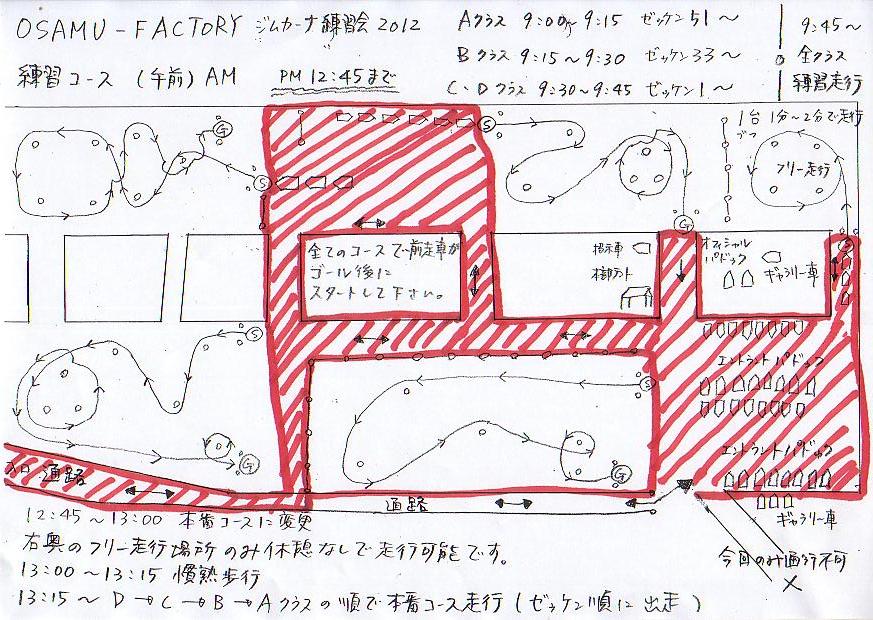 OSAMU-FACTORY ジムカーナ練習会 2012
練習コース (午前) AM PM 12:45まで
Aクラス 9:00～9:15 ゼッケン51～
Bクラス 9:15～9:30 ゼッケン33～
C・Dクラス 9:30～9:45 ゼッケン1～
9:45～
全クラス
練習走行
1台 1分～2分で走行
づつ
フリー走行
G
S
S
G
S
全てのコースで前走車が
ゴール後に
スタートして下さい。
指示車
本部テント
オフィシャル
パドック
ギャラリー車
エントラントパドック
エントラントパドック
S
G
S
G
入口 通路
通路
ギャラリー車
今回のみ通行不可
12:45～13:00 本番コースに変更
右奥のフリー走行場所のみ休憩なしで走行可能です。
13:00～13:15 慣熟歩行
13:15～ D→C→B→Aクラスの順で本番コース走行 (ゼッケン順に出走)